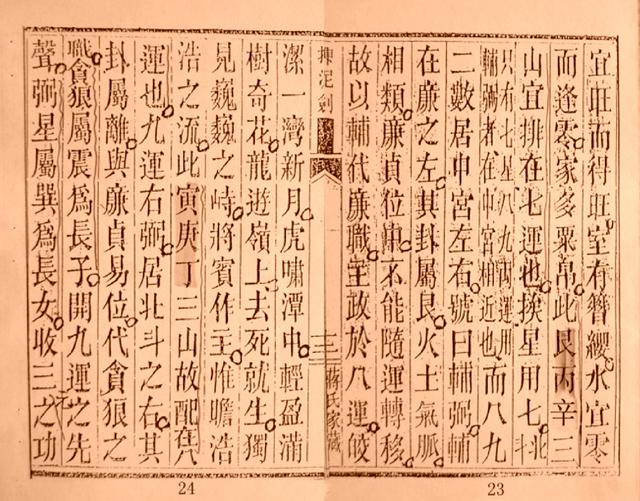 宜旺而得旺室有簪纓水宜零
而逢零家多粟帛此艮丙辛三
山宜排在七運也挨星用七北
只有七星八九兩運用
輔弼者在中宮相近也而八九
二數居中宮左右號曰輔弼輔
在廉之左其卦屬艮火土氣脈
相類廉貞位中不能隨運轉移
故以輔代廉職主政於八運皎
掉泥劍
蔣氏家藏
潔一灣新月虎嘯潭中輕盈滿
樹奇花龍遊嶺上去死就生獨
見巍巍之峙將賓作主惟瞻浩
浩之流此寅庚丁三山故配在八
運也九運右弼居北斗之右其
卦屬離與廉貞易位代貪狼之
職貪狼屬震爲長子開九運之先
聲弼星屬巽爲長女收三元之功
23
24